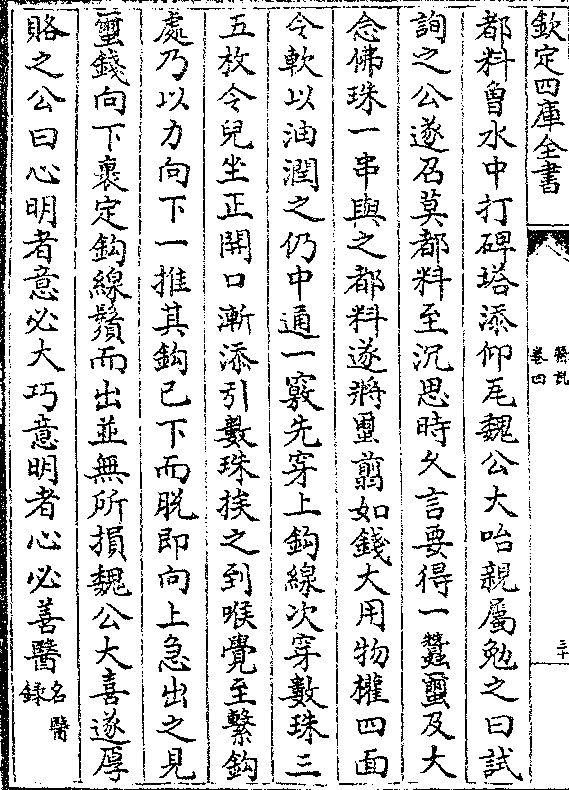 欽定四庫全書
醫説
卷四
三十
都料魯水中打碑塔添仰瓦魏公大咍親屬勉之曰試
詢之公遂召莫都料至沉思時久言要得一蠶壐及大
念佛珠一串與之都料遂將壐剪如錢大用物攉四面
令軟以油潤之仍中通一竅先穿上鈎線次穿數珠三
五枚令兒坐正開口漸添引數珠挨之到喉覺至繫鈎
處乃以力向下一推其鈎已下而脱即向上急出之見
壐錢向下裹定鈎線鬚而出並無所損魏公大喜遂厚
賂之公曰心明者意必大巧意明者心必善醫名醫録